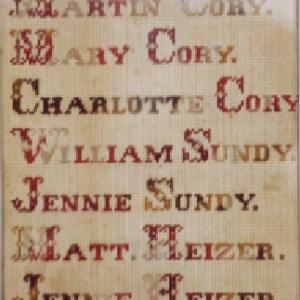 MARTIN CORY.
MARY CORY.
CHARLOTTE CORY
WILLIAM SUNDY.
JENNIE SUNDY.
MATT. HEIZER.
JENNIE HEIZER